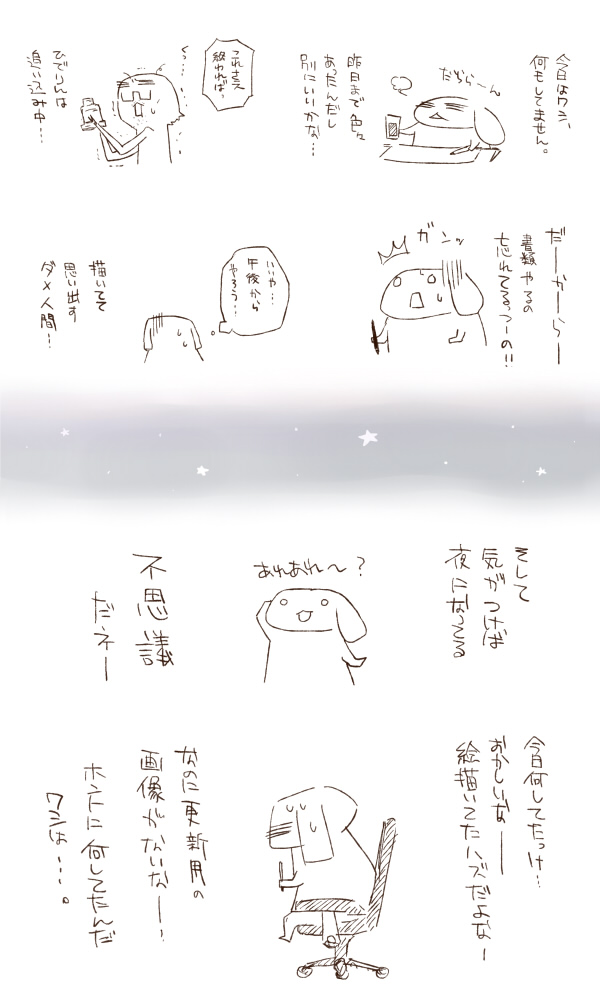 今日はワシ、
何もしてません。
だららーん
昨日まで色々
あったんだし
別にいいかな…
これさえ
終われば…
くっ…
ひでりんは
追い込み中…
だーかーらー
書類やるの
忘れてるっつーの!!
ガンッ
いいや…
午後から
やろう…
描いてて
思い出す
ダメ人間…
そして
気がつけば
夜になってる
あれあれ〜?
不思議
だネー
今日何してたっけ…
おかしいなー
絵描いてたハズだよなー
なのに更新用の
画像がないなー…
ホントに何してたんだ
ワシは…。